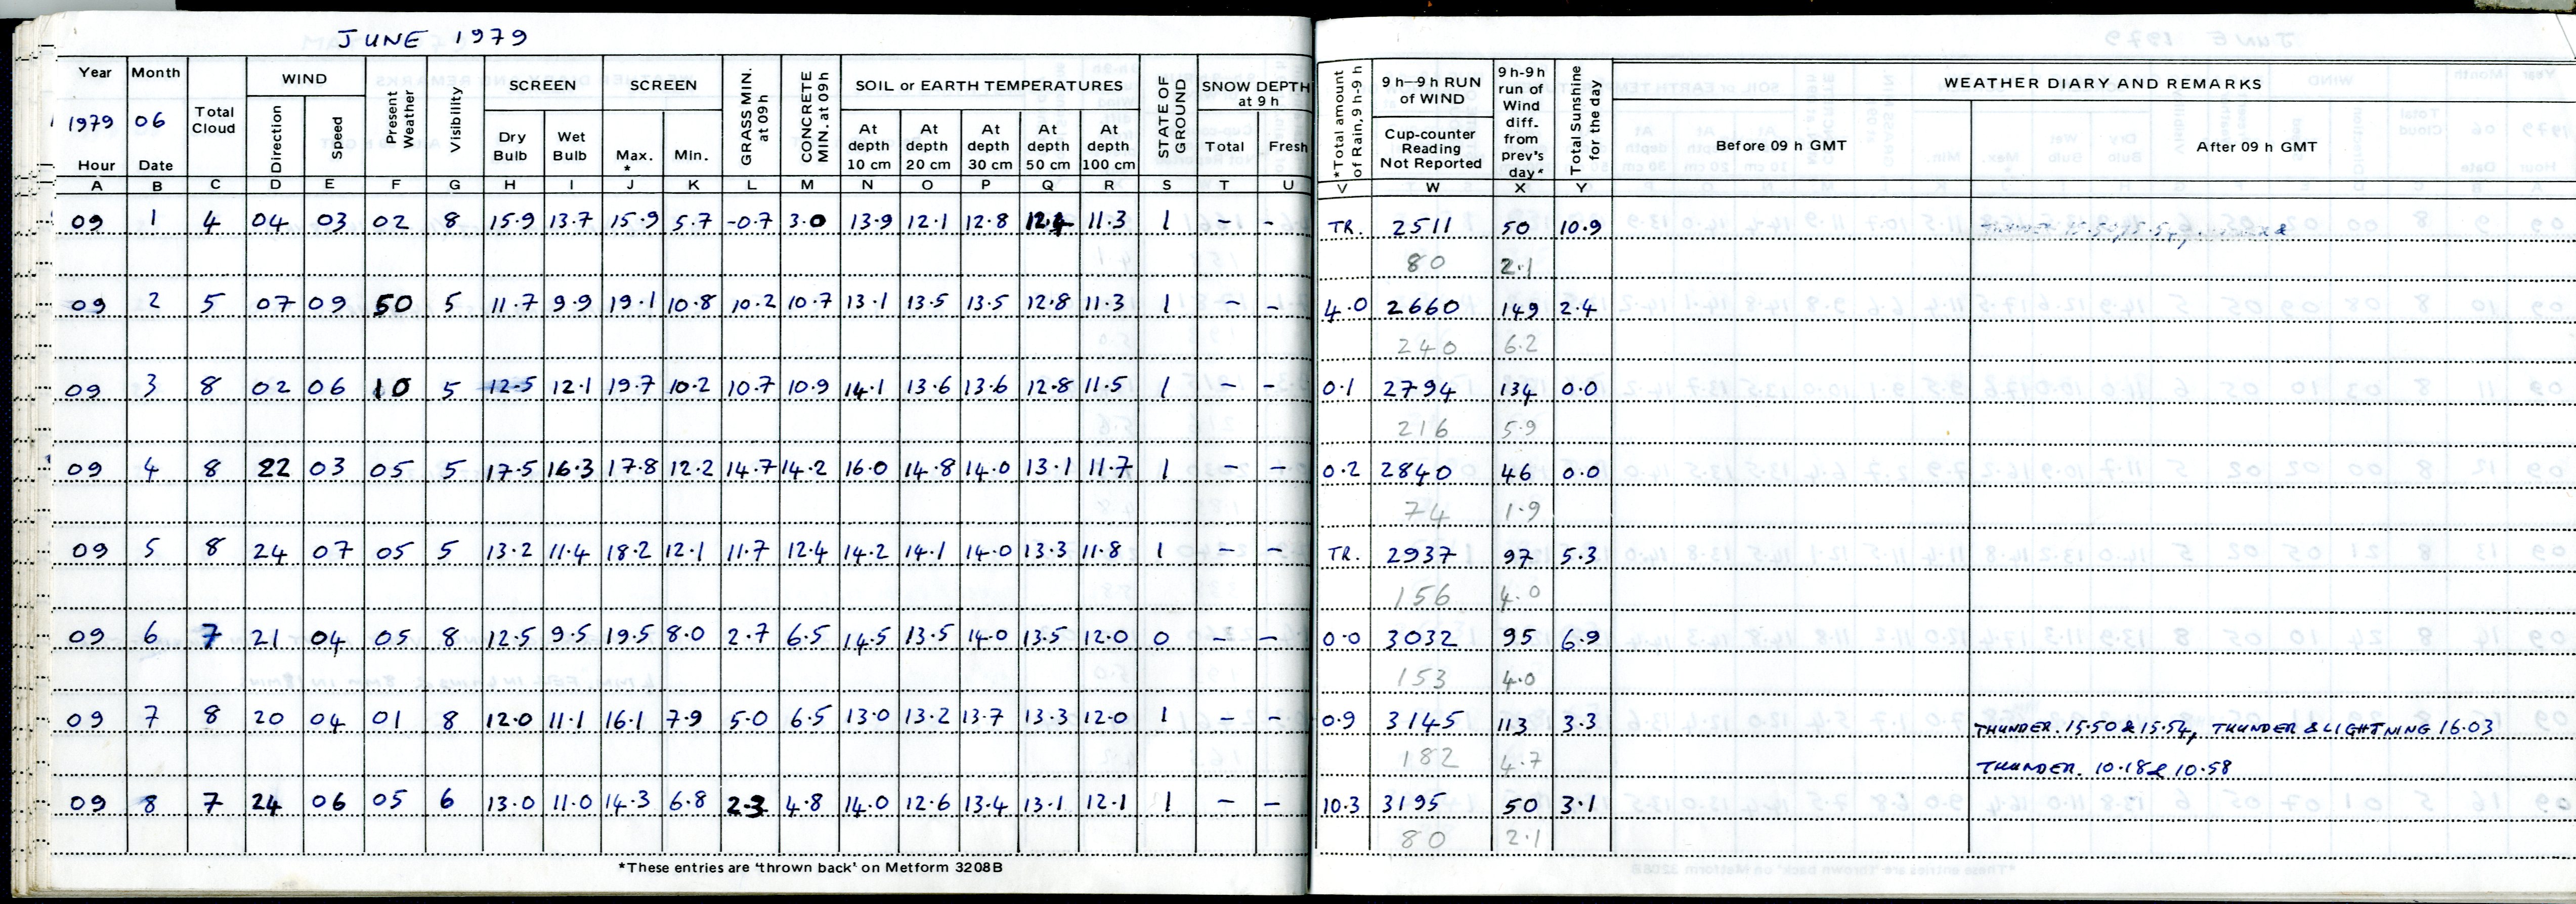 JUNE 1979
Year Month WIND SCREEN SCREEN SOIL or EARTH TEMPERATURES SNOW DEPTH at 9 h 9 h—9 h RUN of WIND WEATHER DIARY AND REMARKS
1979 06 Total Cloud Direction Speed Present Weather Visibility Dry Bulb Wet Bulb Max. * Min. GRASS MIN. at 09h CONCRETE MIN. at 09h At depth 10 cm At depth 20 cm At depth 30 cm At depth 50 cm At depth 100 cm STATE OF GROUND Total Fresh *Total amount of Rain, 9 h-9 h Cup-counter Reading Not Reported 9 h-9h run of Wind diff. from prev's day* Total Sunshine for the day Before 09 h GMT After 09 h GMT
Hour Date
A B C D E F G H I J K L M N O P Q R S T U V W X Y
09 1 4 04 03 02 8 15.9 13.7 15.9 5.7 -0.7 3.0 13.9 12.1 12.8 12.4 11.3 1 - - TR. 2511 50 10.9
80 2.1
09 2 5 07 09 50 5 11.7 9.9 19.1 10.8 10.2 10.7 13.1 13.5 13.5 12.8 11.3 1 - - 4.0 2660 149 2.4
240 6.2
09 3 8 02 06 10 5 12.5 12.1 19.7 10.2 10.7 10.9 14.1 13.6 13.6 12.8 11.5 1 - - 0.1 2794 134 0.0
216 5.9
09 4 8 22 03 05 5 17.5 16.3 17.8 12.2 14.7 14.2 16.0 14.8 14.0 13.1 11.7 1 - - 0.2 2840 46 0.0
74 1.9
09 5 8 24 07 05 5 13.2 11.4 18.2 12.1 11.7 12.4 14.2 14.1 14.0 13.3 11.8 1 - - TR. 2937 97 5.3
156 4.0
09 6 7 21 04 05 8 12.5 9.5 19.5 8.0 2.7 6.5 14.5 13.5 14.0 13.5 12.0 0 - - 0.0 3032 95 6.9
153 4.0
09 7 8 20 04 01 8 12.0 11.1 16.1 7.9 5.0 6.5 13.0 13.2 13.7 13.3 12.0 1 - - 0.9 3145 113 3.3 THUNDER. 15.50 & 15.54, THUNDER & LIGHTNING 16.03
182 4.7 THUNDER. 10.18 & 10.58
09 8 7 24 06 05 6 13.0 11.0 14.3 6.8 2.3 4.8 14.0 12.6 13.4 13.1 12.1 1 - - 10.3 3195 50 3.1
80 2.1
*These entries are 'thrown back' on Metform 3208B